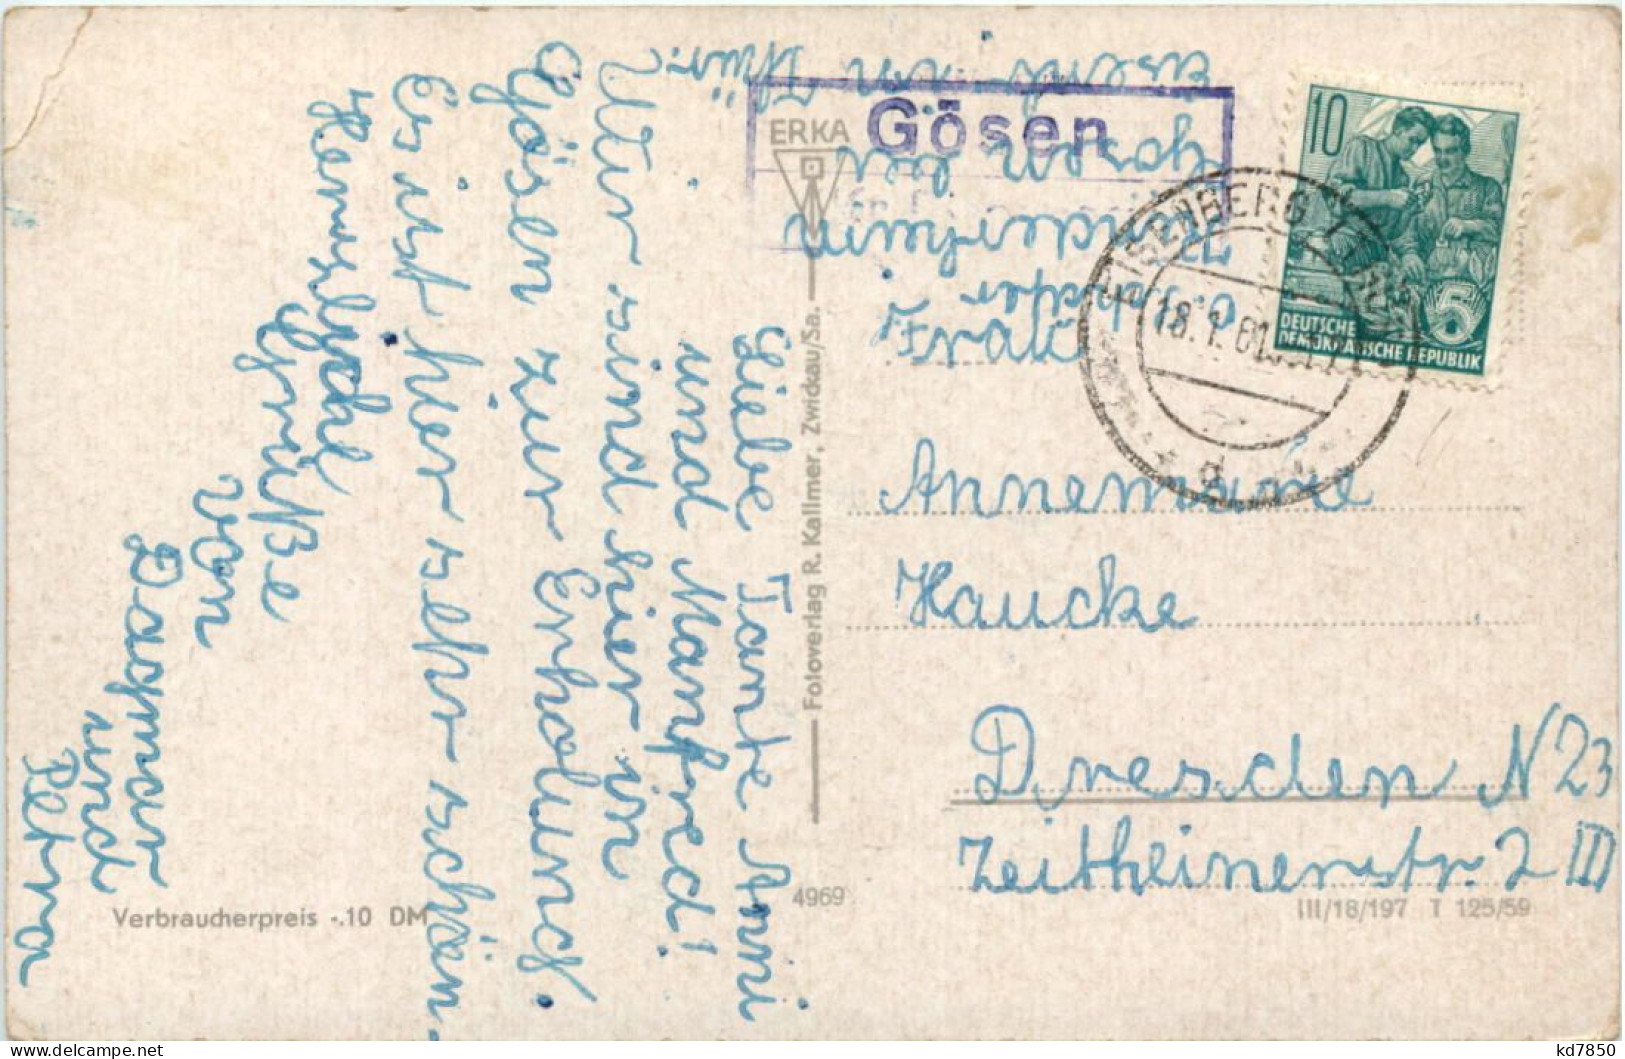 Liebe Tante Anni
und Manfred!
Wir sind hier in
Gösen zur Erholung.
Es ist hier sehr schön.
Herzliche
Grüße
von
Dagmar
und
Petra
Verbraucherpreis -.10 DM
Fotoverlag R. Kallmer, Zwickau/Sa.
4969
ERKA
Gösen
Kinderheim
Gösen
Thür.
EISENBERG (THÜR)
18.1.61
d
10
5
DEUTSCHE
DEMOKRATISCHE REPUBLIK
Frau
Annemarie
Haucke
Dresden N 23
Zeitheinerstr. 2 III
III/18/197 T 125/59
kd7850